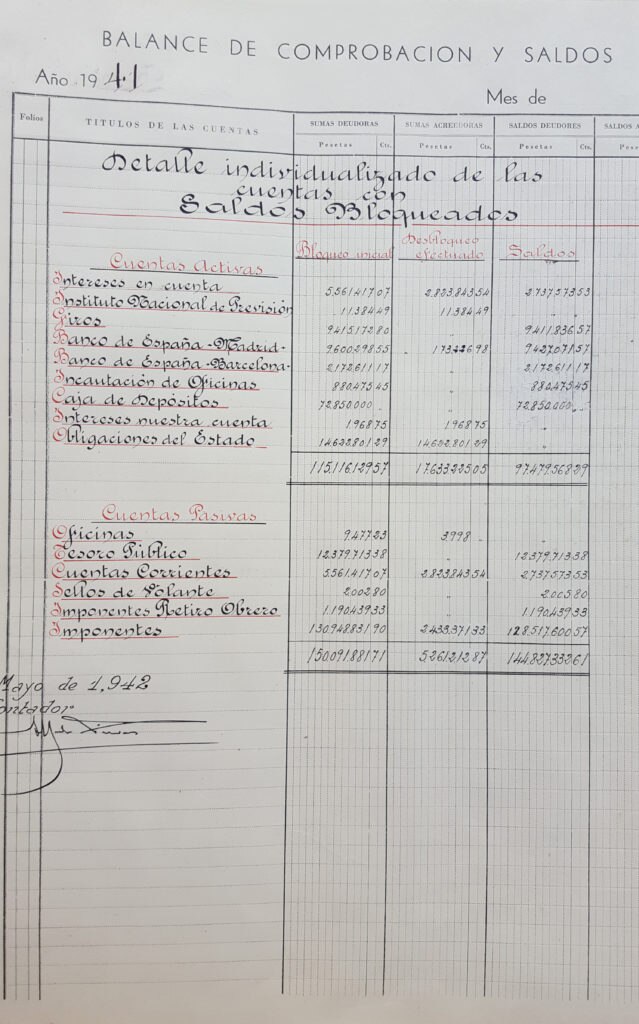 BALANCE DE COMPROBACION Y SALDOS
Año 1941
Mes de
Folios TITULOS DE LAS CUENTAS SUMAS DEUDORAS SUMAS ACREEDORAS SALDOS DEUDORES SALDOS A
Pesetas Cts. Pesetas Cts. Pesetas Cts. Pese
Detalle individualizado de las
cuentas con
Saldos Bloqueados
Bloqueo inicial Desbloqueo efectuado Saldos
Cuentas Activas
Intereses en cuenta 5.561.417 07 2.823.843 54 2.737.573 53
Instituto Nacional de Previsión 11.384 49 11.384 49 "
Giros 9.415.172 80 " 9.411.836 57
Banco de España-Madrid- 9.600.298 55 9.427.071 57
Banco de España-Barcelona- 2.172.611 17 " 2.172.611 17
Incautación de Oficinas 880.475 45 " 880.475 45
Caja de Depósitos 72.850.000 " 72.850.000
Intereses nuestra cuenta 1.968 75 1.968 75 "
Obligaciones del Estado 14.622.801 29 14.622.801 29 "
115.116.129 57 17.633.225 05 97.479.568 29
Cuentas Pasivas
Oficinas 9.477 23 39 98
Tesoro Público 12.379.713 38 " 12.379.713 38
Cuentas Corrientes 5.561.417 07 2.823.843 54 2.737.573 53
Sellos de Volante 2.002 80 " 2.005 80
Imponentes Retiro Obrero 1.190.439 33 " 1.190.439 33
Imponentes 130.948.831 90 2.433.371 33 128.517.600 57
150.091.881 71 5.261.212 87 144.827.332 61
Mayo de 1,942
ontador